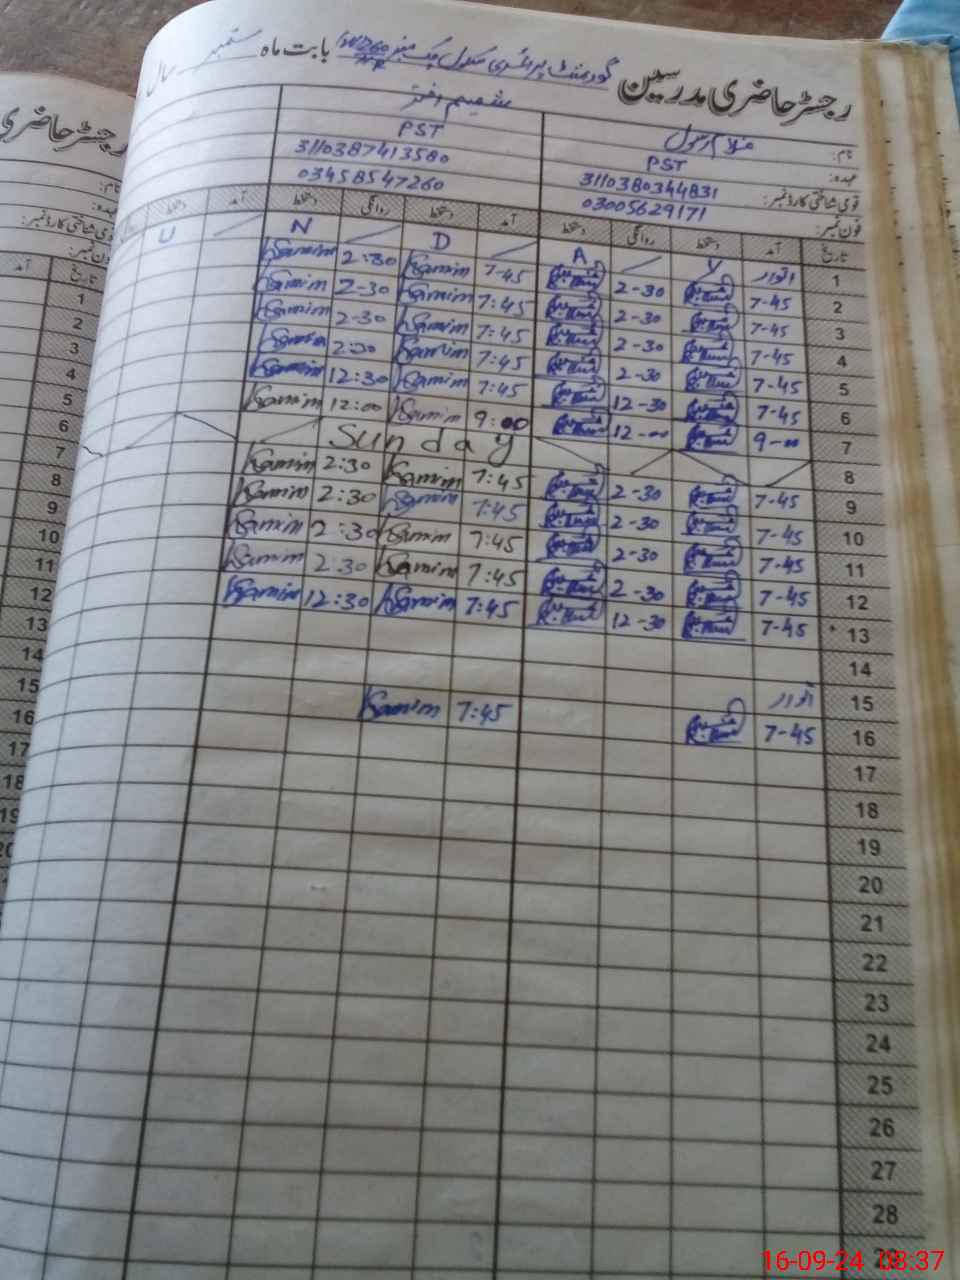 رجسٹر حاضری مدرسین گورنمنٹ پرائمری سکول چک نمبر بابت ماہ ستمبر سال
نام: غلام رسول شمیم اختر
عہدہ: PST PST
قومی شناختی کارڈ نمبر: 3110380344831 3110387413580
فون نمبر: 03005629171 03458547260
تاریخ آمد دستخط روانگی دستخط آمد دستخط روانگی دستخط آمد دستخط
1 اتوار Y A D N U
2 7-45 2-30 7-45 Samim 2:30 Samim
3 7-45 2-30 7:45 Samim 2-30 Samim
4 7-45 2-30 7:45 Samim 2-30 Samim
5 7-45 2-30 7:45 Samim 2:30 Samim
6 7-45 12-30 7:45 Samim 12:30 Samim
7 9-00 12-00 9:00 Samim 12:00 Samim
8 Sunday
9 7-45 2-30 7:45 Samim 2:30 Samim
10 7-45 2-30 7:45 Samim 2:30 Samim
11 7-45 2-30 7:45 Samim 2:30 Samim
12 7-45 2-30 7:45 Samim 2:30 Samim
13 7-45 12-30 7:45 Samim 12:30 Samim
14
15 اتوار
16 7-45 7:45 Samim
17
18
19
20
21
22
23
24
25
26
27
28
رجسٹر حاضری
نام:
عہدہ:
قومی شناختی کارڈ نمبر:
فون نمبر:
تاریخ آمد
1
2
3
4
5
6
7
8
9
10
11
12
13
14
15
16
17
18
19
16-09-24 08:37